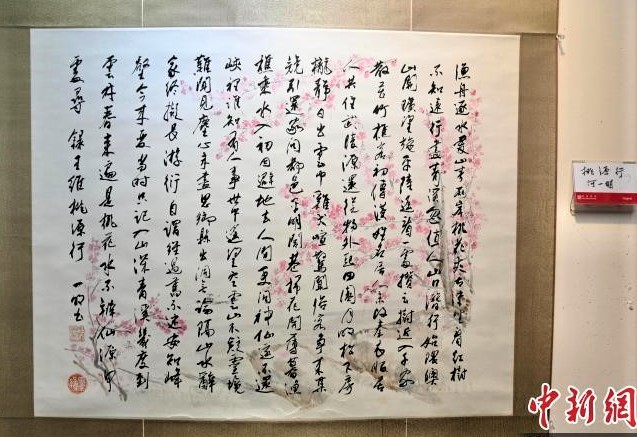 漁舟逐水愛山春兩岸桃花夾去津坐看紅樹
不知遠行盡青溪忽值人山口潛行始隈隩
山開曠望旋平陸遙看一處攢雲樹近入千家
散花竹樵客初傳漢姓名居人未改秦衣服居
人共住武陵源還從物外起田園月明松下房
櫳靜日出雲中雞犬喧驚聞俗客爭來集
競引還家問都邑平明閭巷掃花開薄暮漁
樵乘水入初因避地去人間更問神仙遂不還
峽裡誰知有人事世中遙望空雲山不疑靈境
難聞見塵心未盡思鄉縣出洞無論隔山水辭
家終擬長游衍自謂經過舊不迷安知峰
壑今來變當時只記入山深青溪幾度到
雲林春來遍是桃花水不辨仙源何
處尋 錄王維桃源行 一明書
桃源行
何一明
中新網